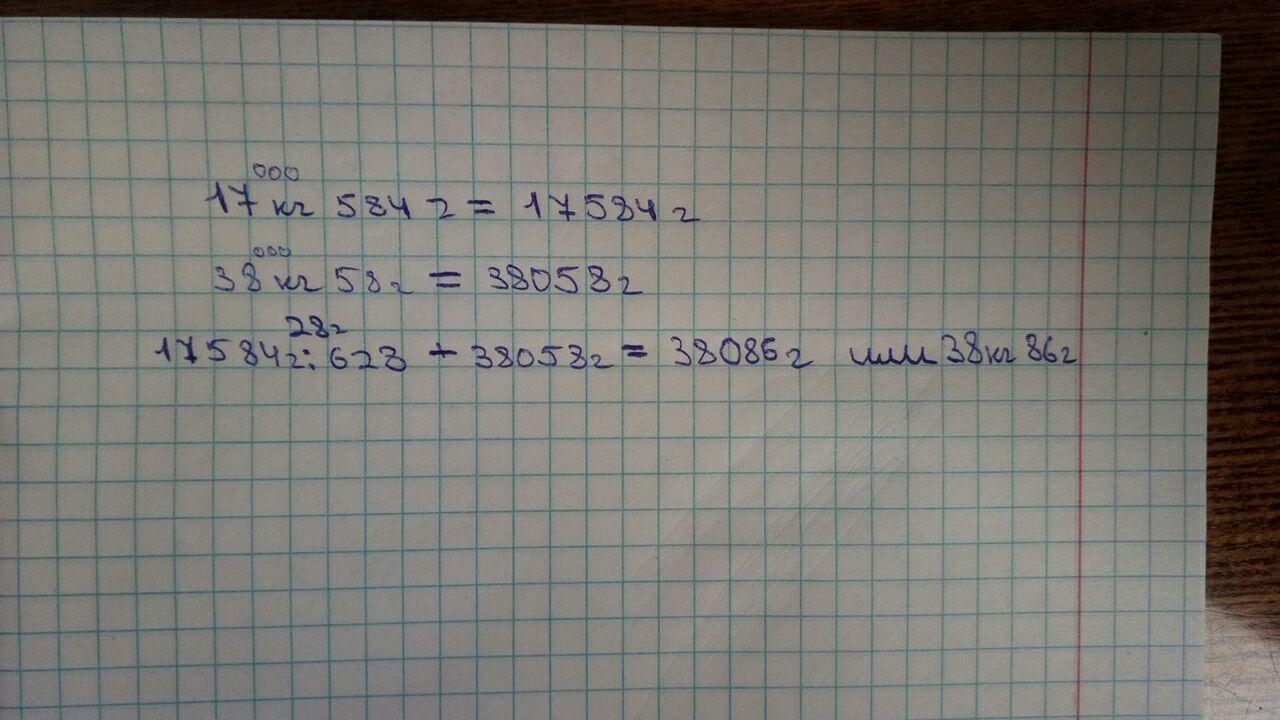 000
17 кг 584 г = 17584 г
000
38 кг 58г = 38058г
28г
17584г : 628 + 38058г = 38086г или 38кг 86г